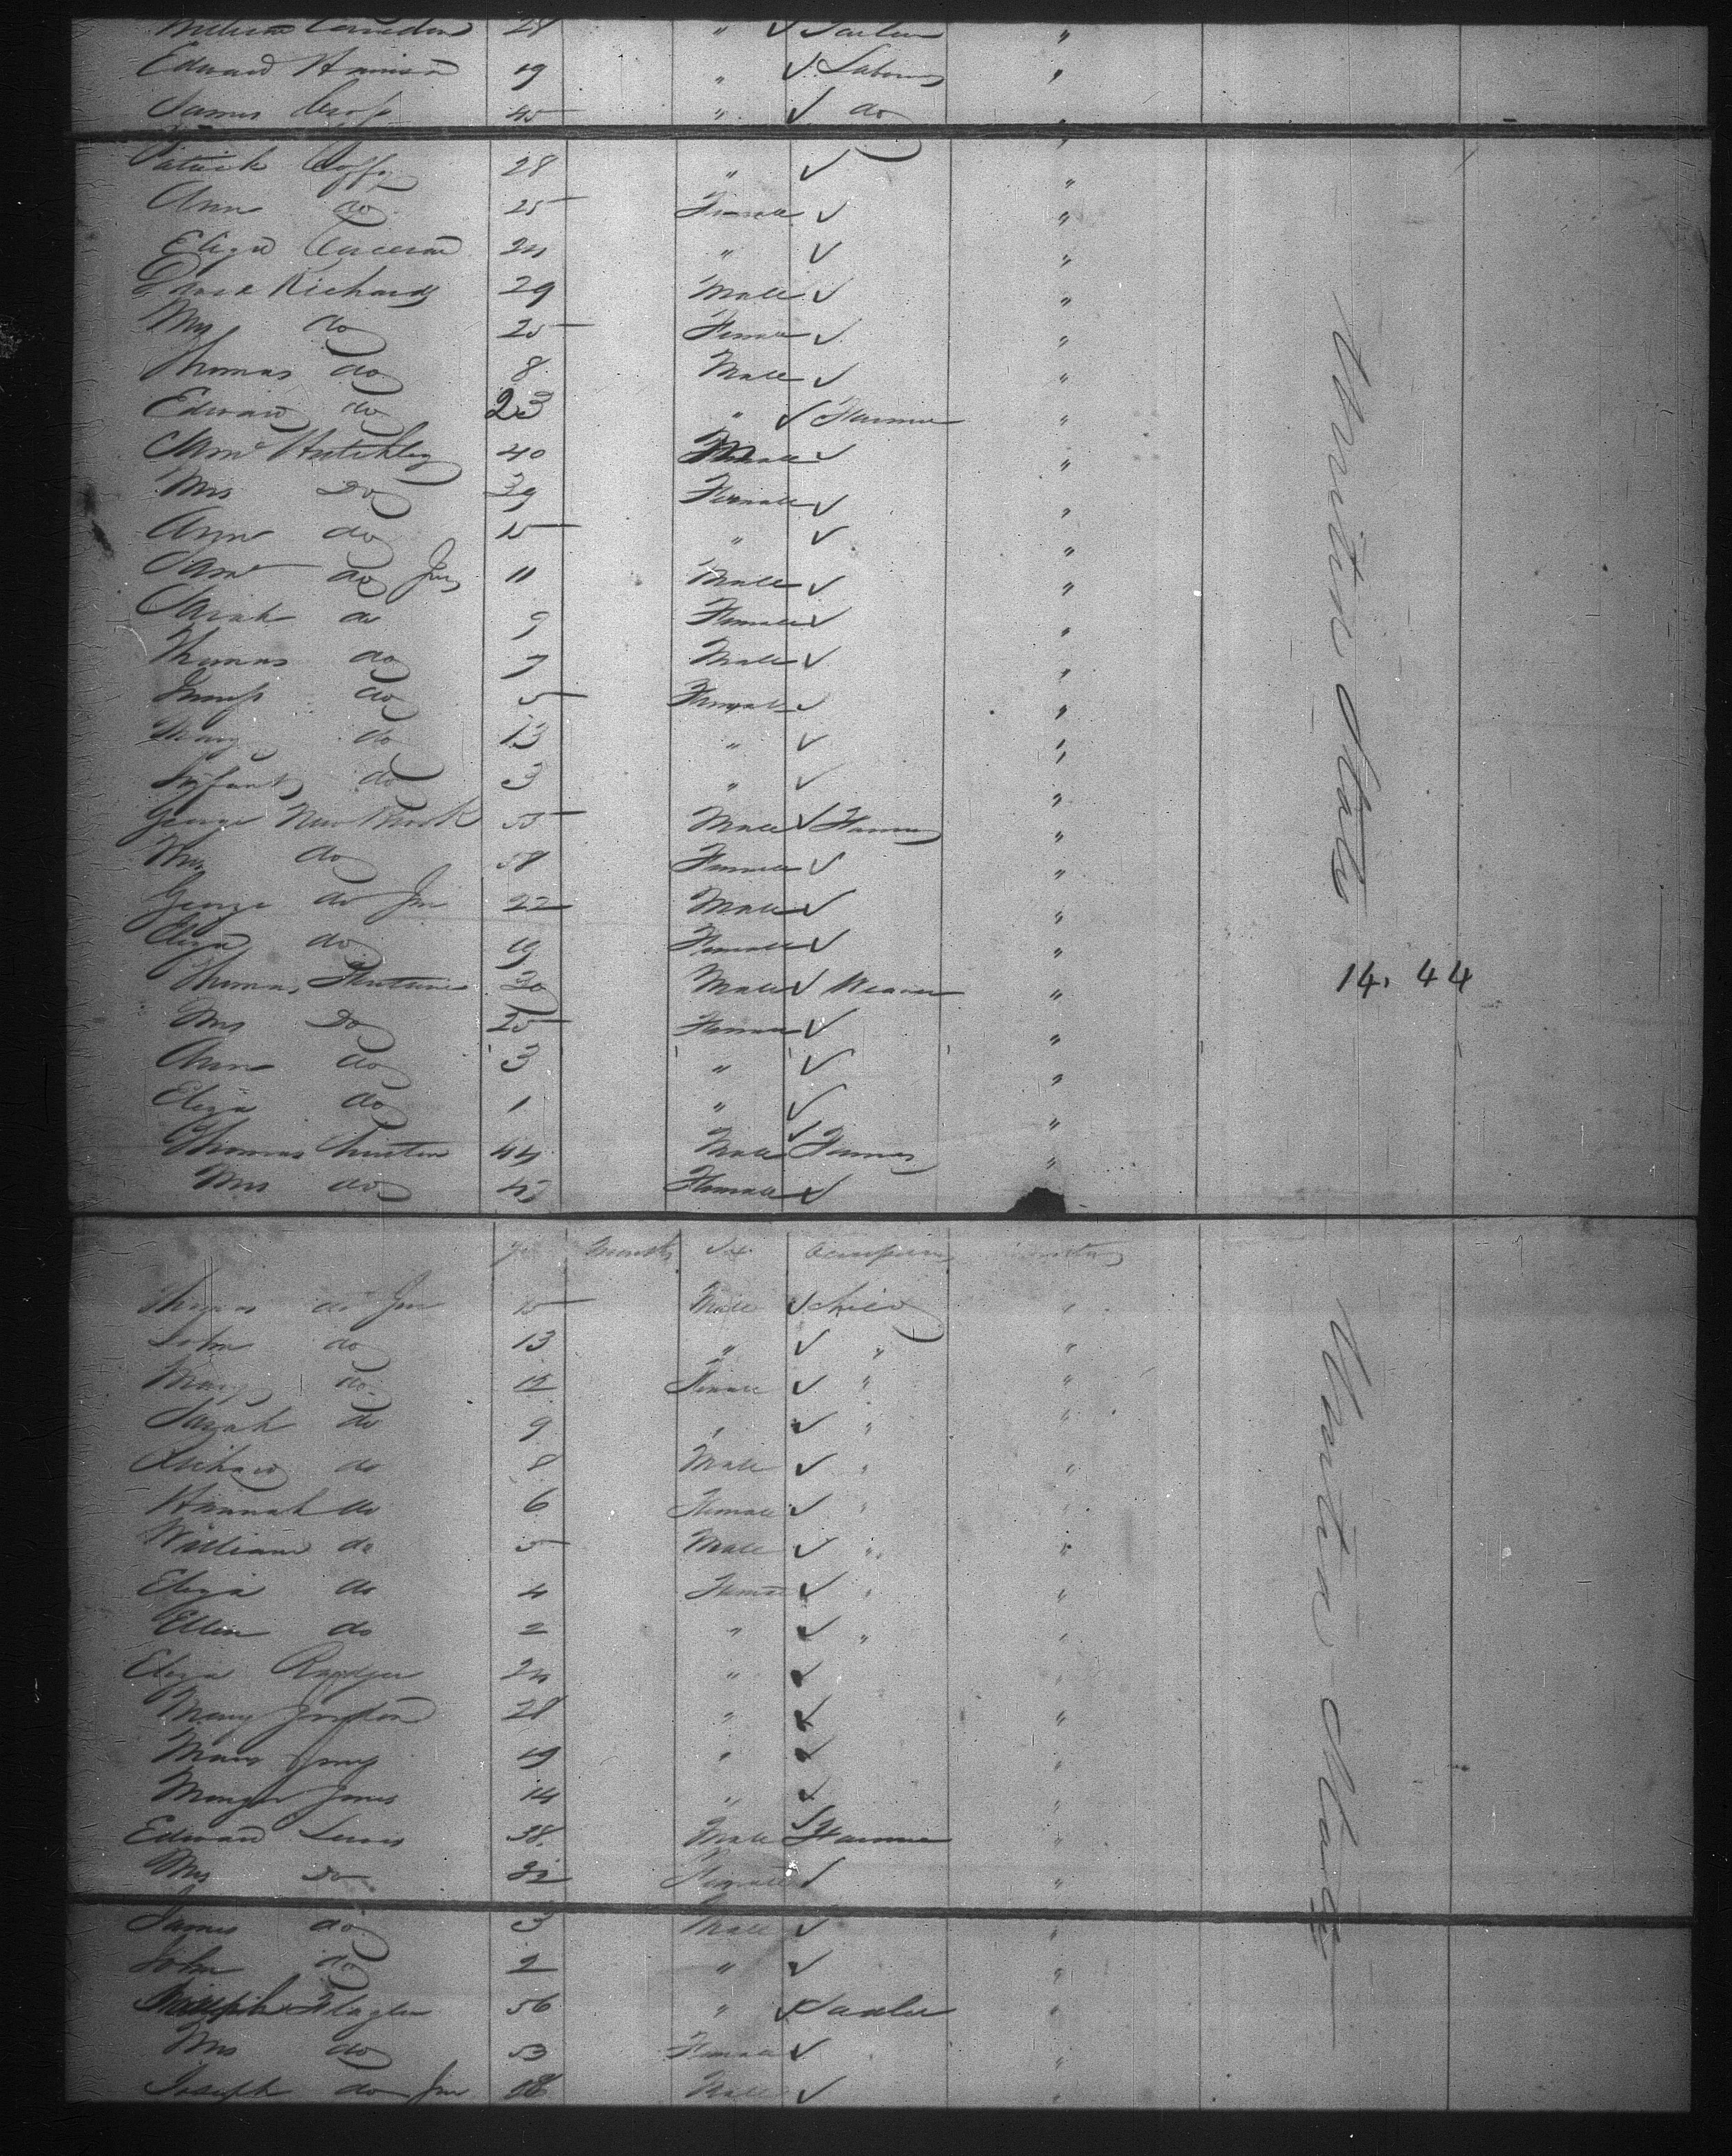 William 28 " ✓
Edward 19 " ✓ Laborer "
James Cross 45 " ✓ do "
Patrick Coffy 28 " ✓ "
Ann do 25 Female ✓ "
Eliza 24 " ✓ "
Richards 29 Male ✓ "
Mrs do 25 Female ✓ "
Thomas do 8 Male ✓ "
Edward do 23 " ✓ Farmer "
Saml Hutchley 40 Male ✓ "
Mrs Do 39 Female ✓ "
Ann do 15 " ✓ "
Saml do Jun 11 Male ✓ "
Sarah do 9 Female ✓ "
Thomas do 7 Male ✓ "
do 5 Female ✓ "
Mary do 13 " ✓ "
Infant do 3 " ✓ "
George 55 Male ✓ Farmer "
Mrs do 58 Female ✓ "
George do Jun 22 Male ✓ "
Eliza do 19 Female ✓ "
Thomas 30 Male ✓ Weaver "
Mrs Do 25 Female ✓ "
Ann do 3 " ✓ "
Eliza do 1 " ✓ "
Thomas 44 Male ✓ Farmer "
Mrs do 43 Female ✓
United States
14. 44
months Sex Occupation
Thomas do Jun 15 Male ✓ Child "
John do 13 " ✓ " "
Mary do 12 Female ✓ " "
Sarah do 9 " ✓ " "
Richard do 8 Male ✓ " "
Hannah do 6 Female ✓ " "
William do 5 Male ✓ " "
Eliza do 4 Female ✓ " "
Ellen do 2 " ✓ " "
Eliza 24 " ✓ "
Mary 28 " ✓ "
Mary Jones 19 " ✓ "
Jones 14 " ✓ "
Edward Lewis 38 Male ✓ Farmer "
Mrs Do 32 Female ✓ "
James do 3 Male ✓ "
John do 2 " ✓ "
Joseph 56 " ✓ "
Mrs do 53 Female ✓ "
Joseph do Jun 18 Male ✓ "
United States